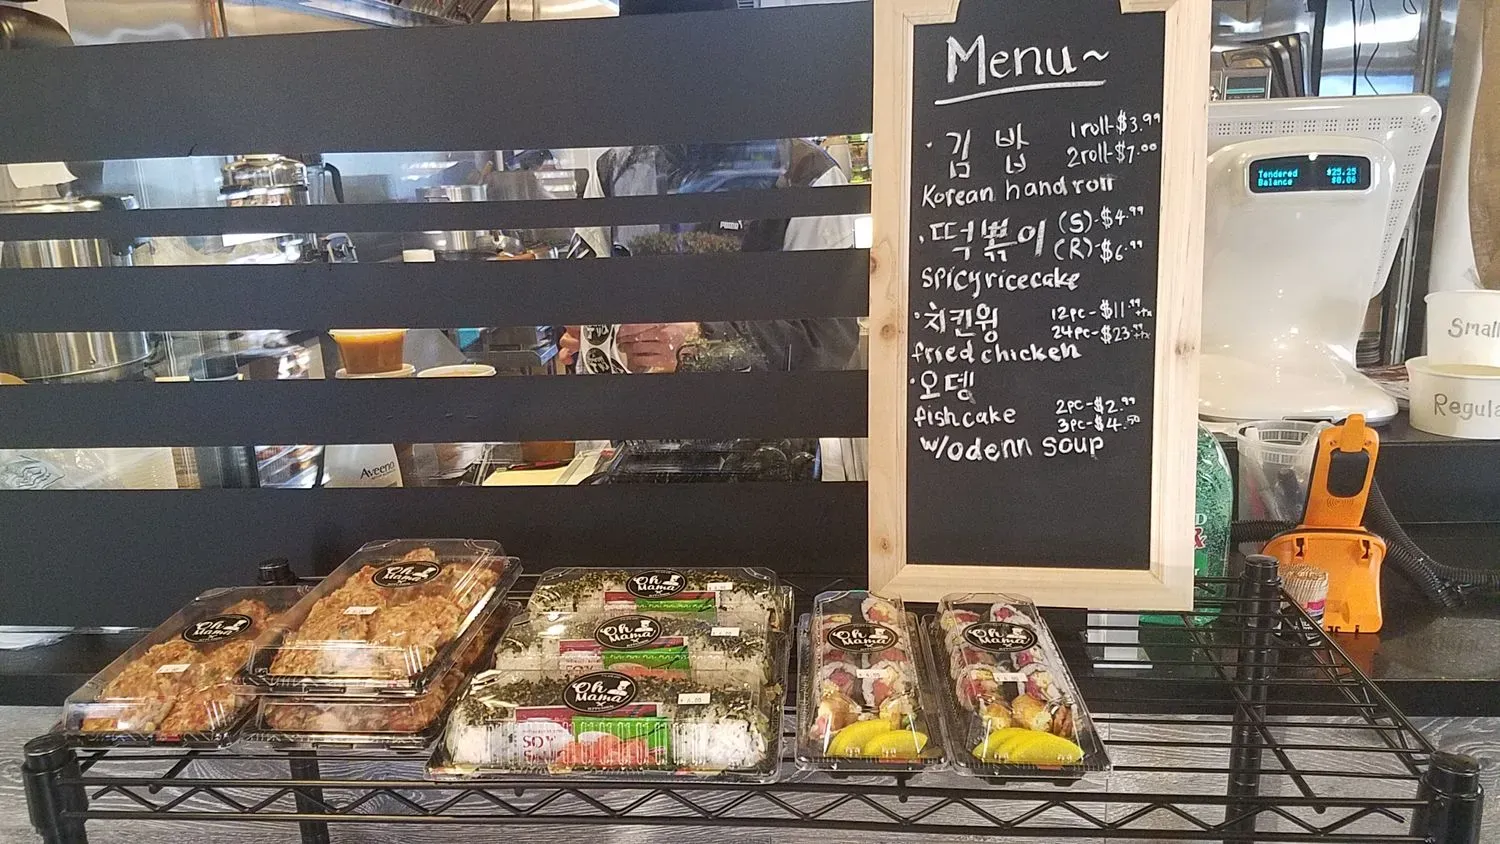 Menu~
·김 밥 1roll-$3.99
2roll-$7.00
Korean handroll
·떡볶이 (S)-$4.99
(R)-$6.99
spicyricecake
·치킨윙 12pc-$11.99+tx
24pc-$23.99+tx
fried chicken
·오뎅
fishcake 2pc-$2.99
3pc-$4.50
w/odenn soup
Tendered $25.25
Balance $0.06
Small
Regula
Aveeno
Oh Mama
Oh Mama
Oh Mama
Oh Mama
Oh Mama
SOY
Oh Mama
Oh Mama